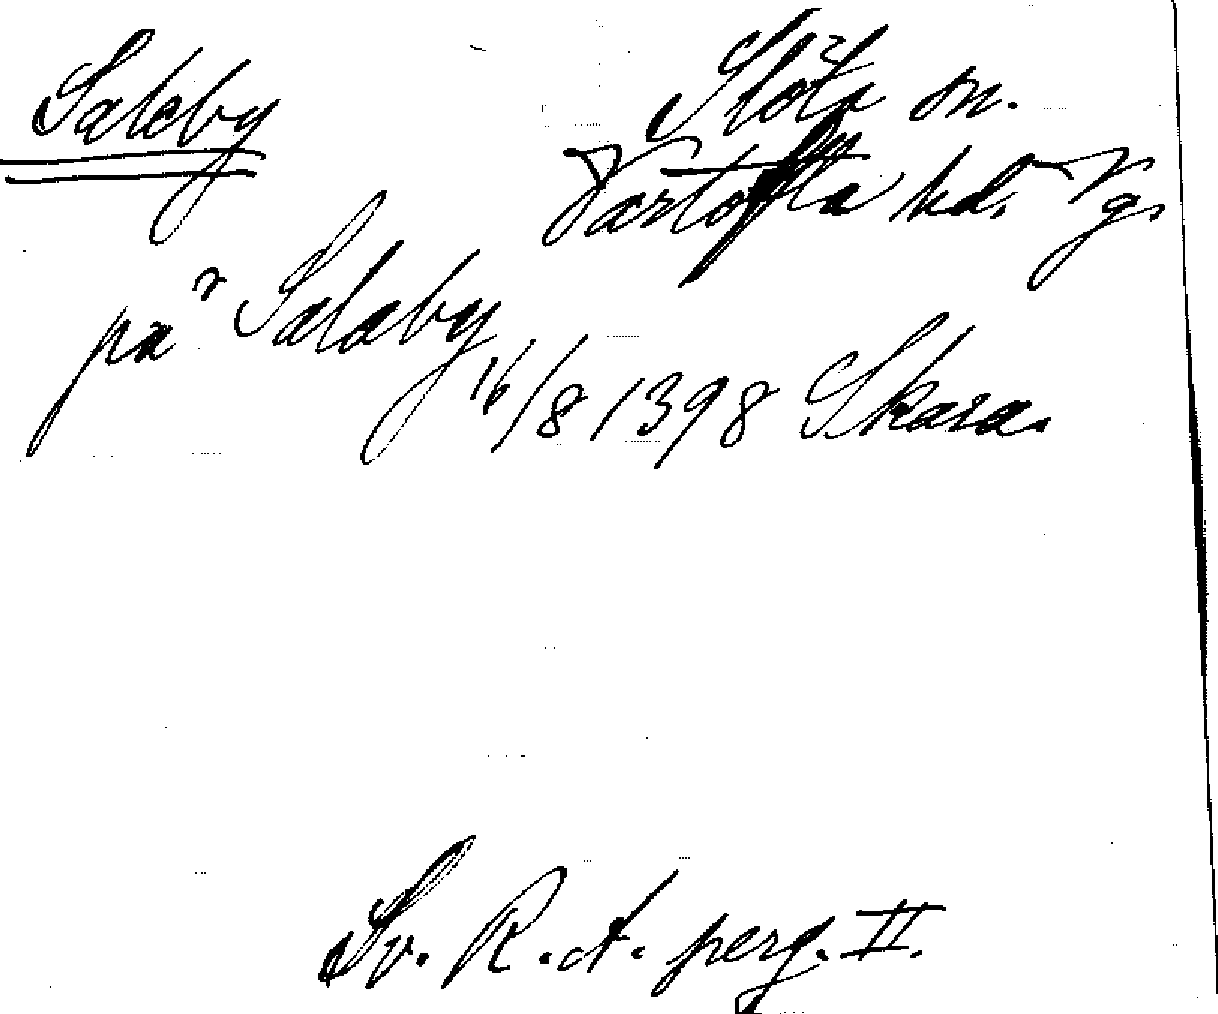 Saleby
Slöta sn.
Vartofta hd. Vg.
på Salaby
16/8 1398 Skara.
Sv. R.A. perg. II.